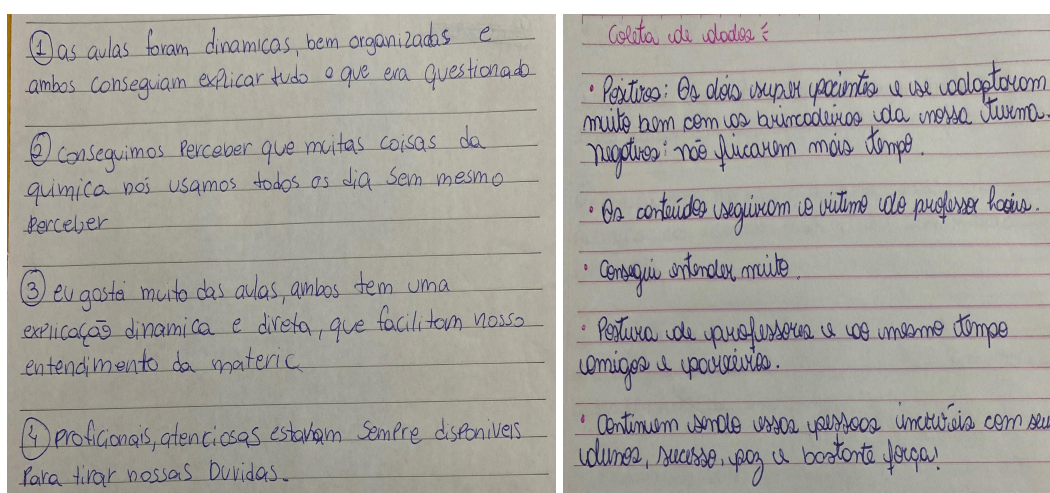 ① as aulas foram dinamicas, bem organizadas e
ambos conseguiam explicar tudo o que era questionado
② Conseguimos Perceber que muitas coisas da
quimica nós usamos todos os dia sem mesmo
Perceber
③ eu gostei muito das aulas, ambos tem uma
explicação dinamica e direta, que facilitam nosso
entendimento da materia
④ proficionais, atenciosas estavam sempre disponiveis
Para tirar nossas Duvidas.
Coleta de dados:
• Positivos: Os dois super pacientes e se adaptaram
muito bem com as brincadeiras da nossa turma.
negativos: não ficarem mais tempo.
• Os conteúdos seguiram o ritimo do professor
• Consegui entender muito.
• Postura de professores e ao mesmo tempo
amigos e parceiros.
• Continuem sendo essas pessoas incríveis com seu
alunos, sucesso, paz e bastante força!